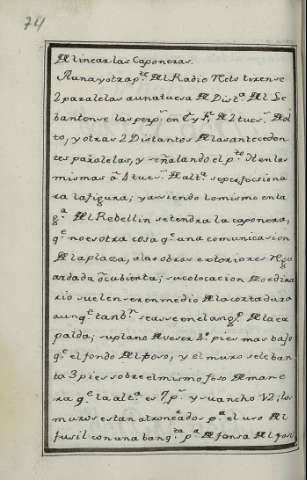 74
Alinear las Caponeras.
A una y otra p.te del Radio Nelo tirense
2 paralelas a una tuesa de Dist.a del Le
bantonse las perp.s en C y F. de 2 tues.s de
to, y otras 2 Distantes de las anteceden
tes paralelas, y señalando el p.to en las
mismas a 4 tues.s de alt.a se perfecsiona
ra la figura; y aviendo lo mismo en ta
g.a del Rebellin se tendra la caponera,
q.e no es otra cosa q.e una comunicasion
de la plaza, a las obras exteriores resgu
ardada o cubierta; su colocacion de ordina
rio suelen ser en medio de la cortadura
aunq.e tanb.n se asse en el ang.o de la ca
palda; su plano a veser 3.s pies mas bajo
q.e el fondo del foso, y el muro se leban
ta 3 pies sobre el mismo foso de mane
ra q.e la alt.a es 7 p.s y su ancho 12; los
muros estan atroneados p.a el uso del
fusil con una banq.ta p.a defensa del fos